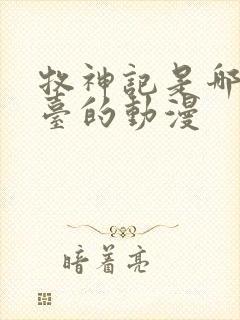 牧神記是哪
臺的動漫
暗着亮